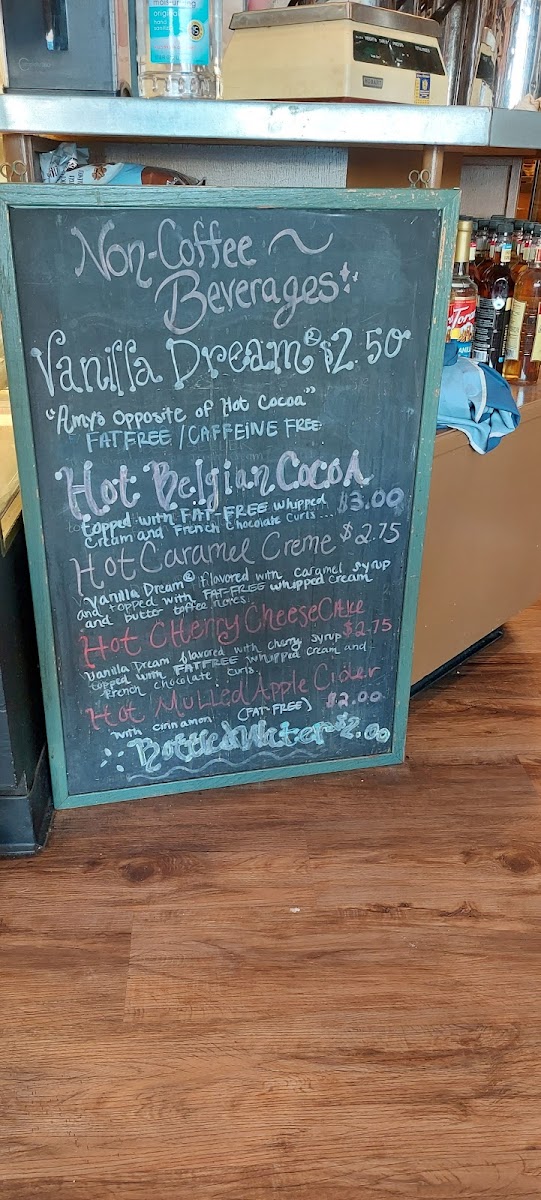 Non-Coffee
Beverages
Vanilla Dream® $2.50
"Amy's Opposite of Hot Cocoa"
FAT FREE / CAFFEINE FREE
Hot Belgian Cocoa
topped with FAT-FREE whipped
cream and French Chocolate Curls.... $3.00
Hot Caramel Creme $2.75
Vanilla Dream® flavored with caramel syrup
and topped with FAT-FREE whipped cream
and butter toffee
Hot Cherry CheeseCake $2.75
Vanilla Dream flavored with cherry syrup
topped with FATFREE whipped cream and
French chocolate curls
Hot Mulled Apple Cider
with cinnamon (FAT-FREE) $2.00
Bottled Water $2.00
original
hand
Torani